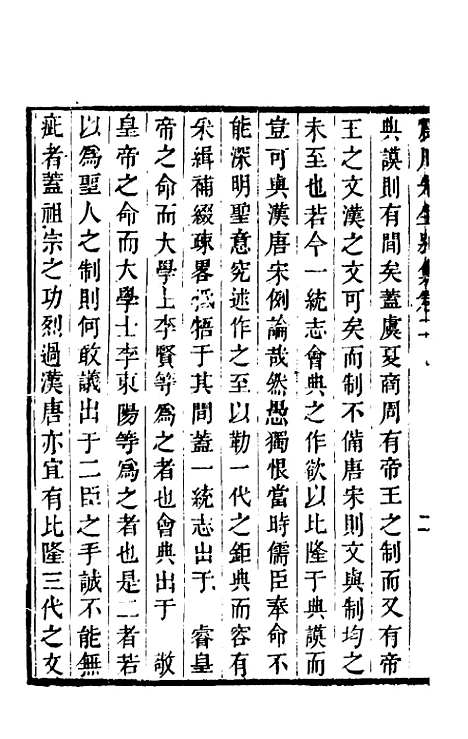 震川先生別集卷二 二
典謨則有間矣蓋虞夏商周有帝王之制而又有帝
王之文漢之文可矣而制不備唐宋則文與制均之
未至也若今一統志會典之作欲以比隆于典謨而
豈可與漢唐宋例論哉然愚獨恨當時儒臣奉命不
能深明聖意究述作之至以勒一代之鉅典而容有
采緝補綴疎畧牴牾于其間蓋一統志出于 睿皇
帝之命而大學上李賢等為之者也會典出于 敬
皇帝之命而大學士李東陽等為之者也是二者若
以為聖人之制則何敢議出于二臣之手誠不能無
疵者蓋祖宗之功烈過漢唐亦宜有比隆三代之文